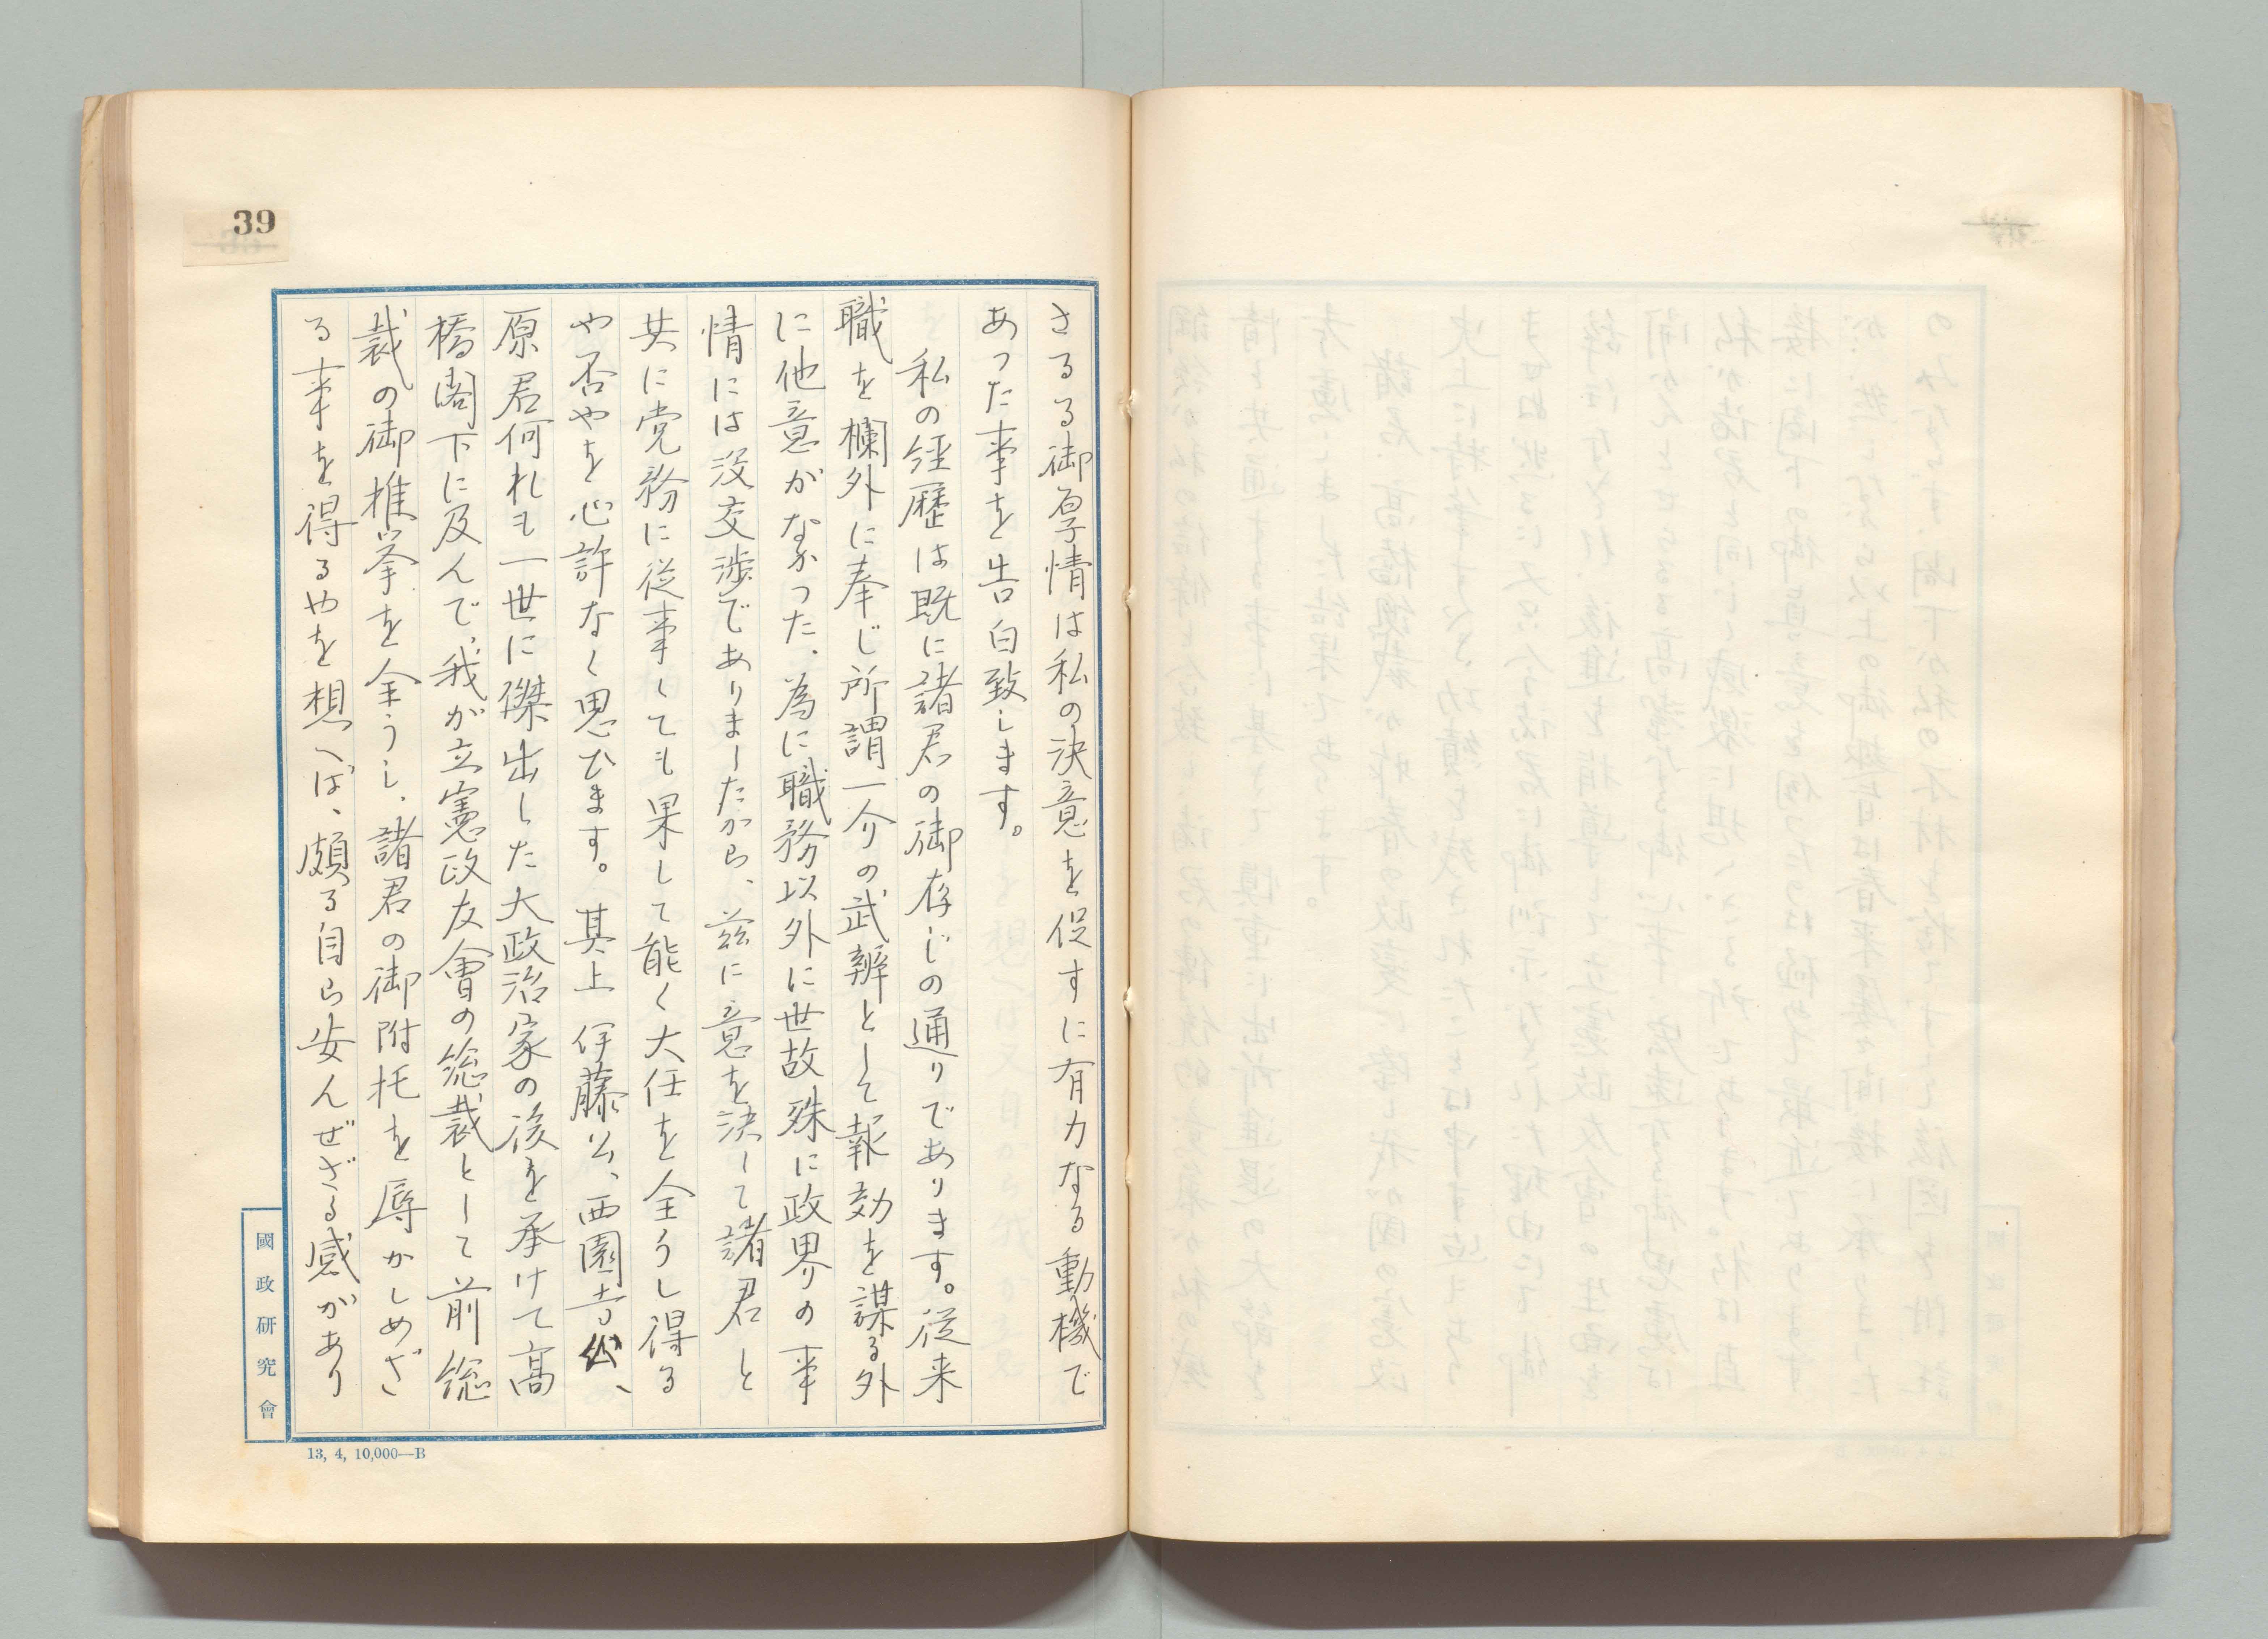 39
さるる御厚情は私の決意を促すに有力なる動機で
あつた事を告白致します。
私の経歴は既に諸君の御存じの通りであります。従来
職を欄外に奉じ所謂一介の武辨として報効を謀る外
に他意がなかつた、為に職務以外に世故殊に政界の事
情には没交渉でありましたから、茲に意を決して諸君と
共に党務に従事しても果して能く大任を全うし得る
や否やを心許なく思ひます。其上伊藤公、西園寺公、
原君何れも一世に傑出した大政治家の後を承けて高
橋閣下に及んで、我が立憲政友會の総裁として前総
裁の御推挙を全うし、諸君の御附托を辱かしめざ
る事を得るやを想へば、頗る自ら安んぜざる感があり
國政研究會
13, 4, 10,000—B